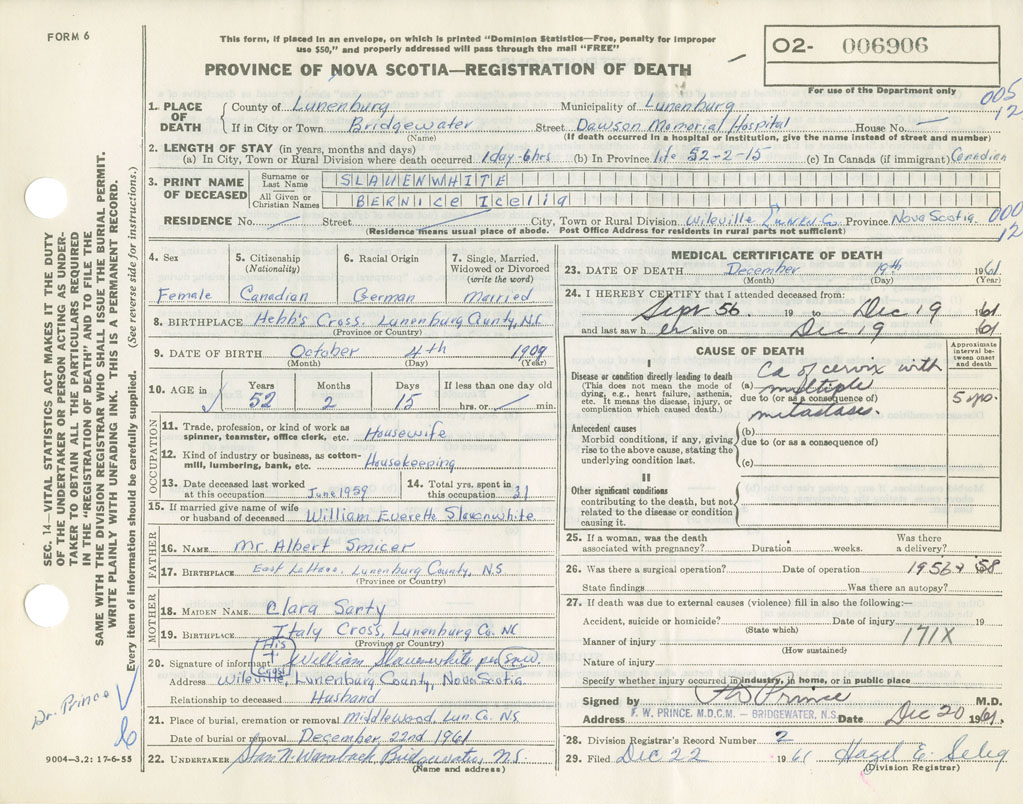 FORM 6
This form, if placed in an envelope, on which is printed "Dominion Statistics—Free, penalty for improper
use $50," and properly addressed will pass through the mail "FREE"
PROVINCE OF NOVA SCOTIA—REGISTRATION OF DEATH
02- 006906
For use of the Department only
005
12
1. PLACE OF DEATH
County of Lunenburg Municipality of Lunenburg
If in City or Town Bridgewater Street Dawson Memorial Hospital House No.
(Name) (If death occurred in a hospital or institution, give the name instead of street and number)
2. LENGTH OF STAY (in years, months and days)
(a) In City, Town or Rural Division where death occurred 1 day-6 hrs (b) In Province life 52-2-15 (c) In Canada (if immigrant) Canadian
3. PRINT NAME OF DECEASED
Surname or Last Name SLAUENWHITE
All Given or Christian Names BERNICE Icelia
RESIDENCE No. Street City, Town or Rural Division Wileville LUNEN. Co. Province Nova Scotia.
000
12
(Residence means usual place of abode. Post Office Address for residents in rural parts not sufficient)
4. Sex
Female
5. Citizenship (Nationality)
Canadian
6. Racial Origin
German
7. Single, Married, Widowed or Divorced (write the word)
Married
8. BIRTHPLACE Hebb's Cross. Lunenburg County, N.S.
(Province or Country)
9. DATE OF BIRTH October 4th 1909
(Month) (Day) (Year)
10. AGE in
Years 52
Months 2
Days 15
If less than one day old
hrs. or min.
OCCUPATION
11. Trade, profession, or kind of work as spinner, teamster, office clerk, etc. Housewife
12. Kind of industry or business, as cotton-mill, lumbering, bank, etc. Housekeeping
13. Date deceased last worked at this occupation June 1959
14. Total yrs. spent in this occupation 31
15. If married give name of wife or husband of deceased William Everette Slauenwhite
FATHER
16. NAME Mr. Albert Smicer
17. BIRTHPLACE East LaHave, Lunenburg County, N.S
(Province or Country)
MOTHER
18. MAIDEN NAME Clara Sarty
19. BIRTHPLACE Italy Cross, Lunenburg Co. NS
(Province or Country)
His + Cross
20. Signature of informant William Slauenwhite per
Address Wileville, Lunenburg County, Nova Scotia.
Relationship to deceased Husband
21. Place of burial, cremation or removal Middlewood, Lun. Co. N.S
Date of burial or removal December 22nd 1961
22. UNDERTAKER Stan N. Wamback Bridgewater, N.S.
(Name and address)
MEDICAL CERTIFICATE OF DEATH
23. DATE OF DEATH December 19th 1961
(Month) (Day) (Year)
24. I HEREBY CERTIFY that I attended deceased from:
Sept 56 19 to Dec 19 1961
and last saw h er alive on Dec 19 1961
CAUSE OF DEATH
Approximate interval between onset and death
I
Disease or condition directly leading to death
(This does not mean the mode of dying, e.g., heart failure, asthenia, etc. It means the disease, injury, or complication which caused death.)
(a) Ca of cervix with multiple
due to (or as a consequence of)
metastases.
5 yrs.
Antecedent causes
Morbid conditions, if any, giving rise to the above cause, stating the underlying condition last.
(b)
due to (or as a consequence of)
(c)
II
Other significant conditions
contributing to the death, but not related to the disease or condition causing it.
25. If a woman, was the death associated with pregnancy? Duration weeks. Was there a delivery?
26. Was there a surgical operation? Date of operation 1956 & 58
State findings Was there an autopsy?
27. If death was due to external causes (violence) fill in also the following:—
Accident, suicide or homicide? Date of injury 19
(State which)
Manner of injury 171X
(How sustained)
Nature of injury
Specify whether injury occurred in industry, in home, or in public place
Signed by F W Prince M.D.
Address F. W. PRINCE, M.D.C.M. — BRIDGEWATER, N.S. Date Dec 20 1961.
28. Division Registrar's Record Number 2
29. Filed Dec 22 1961 Hazel E. Selig
(Division Registrar)
SEC. 14—VITAL STATISTICS ACT MAKES IT THE DUTY
OF THE UNDERTAKER OR PERSON ACTING AS UNDER-
TAKER TO OBTAIN ALL THE PARTICULARS REQUIRED
IN THE "REGISTRATION OF DEATH" AND TO FILE THE
SAME WITH THE DIVISION REGISTRAR WHO SHALL ISSUE THE BURIAL PERMIT.
WRITE PLAINLY WITH UNFADING INK. THIS IS A PERMANENT RECORD.
Every item of information should be carefully supplied. (See reverse side for instructions.)
Dr. Prince
9004—3,2: 17-6-55